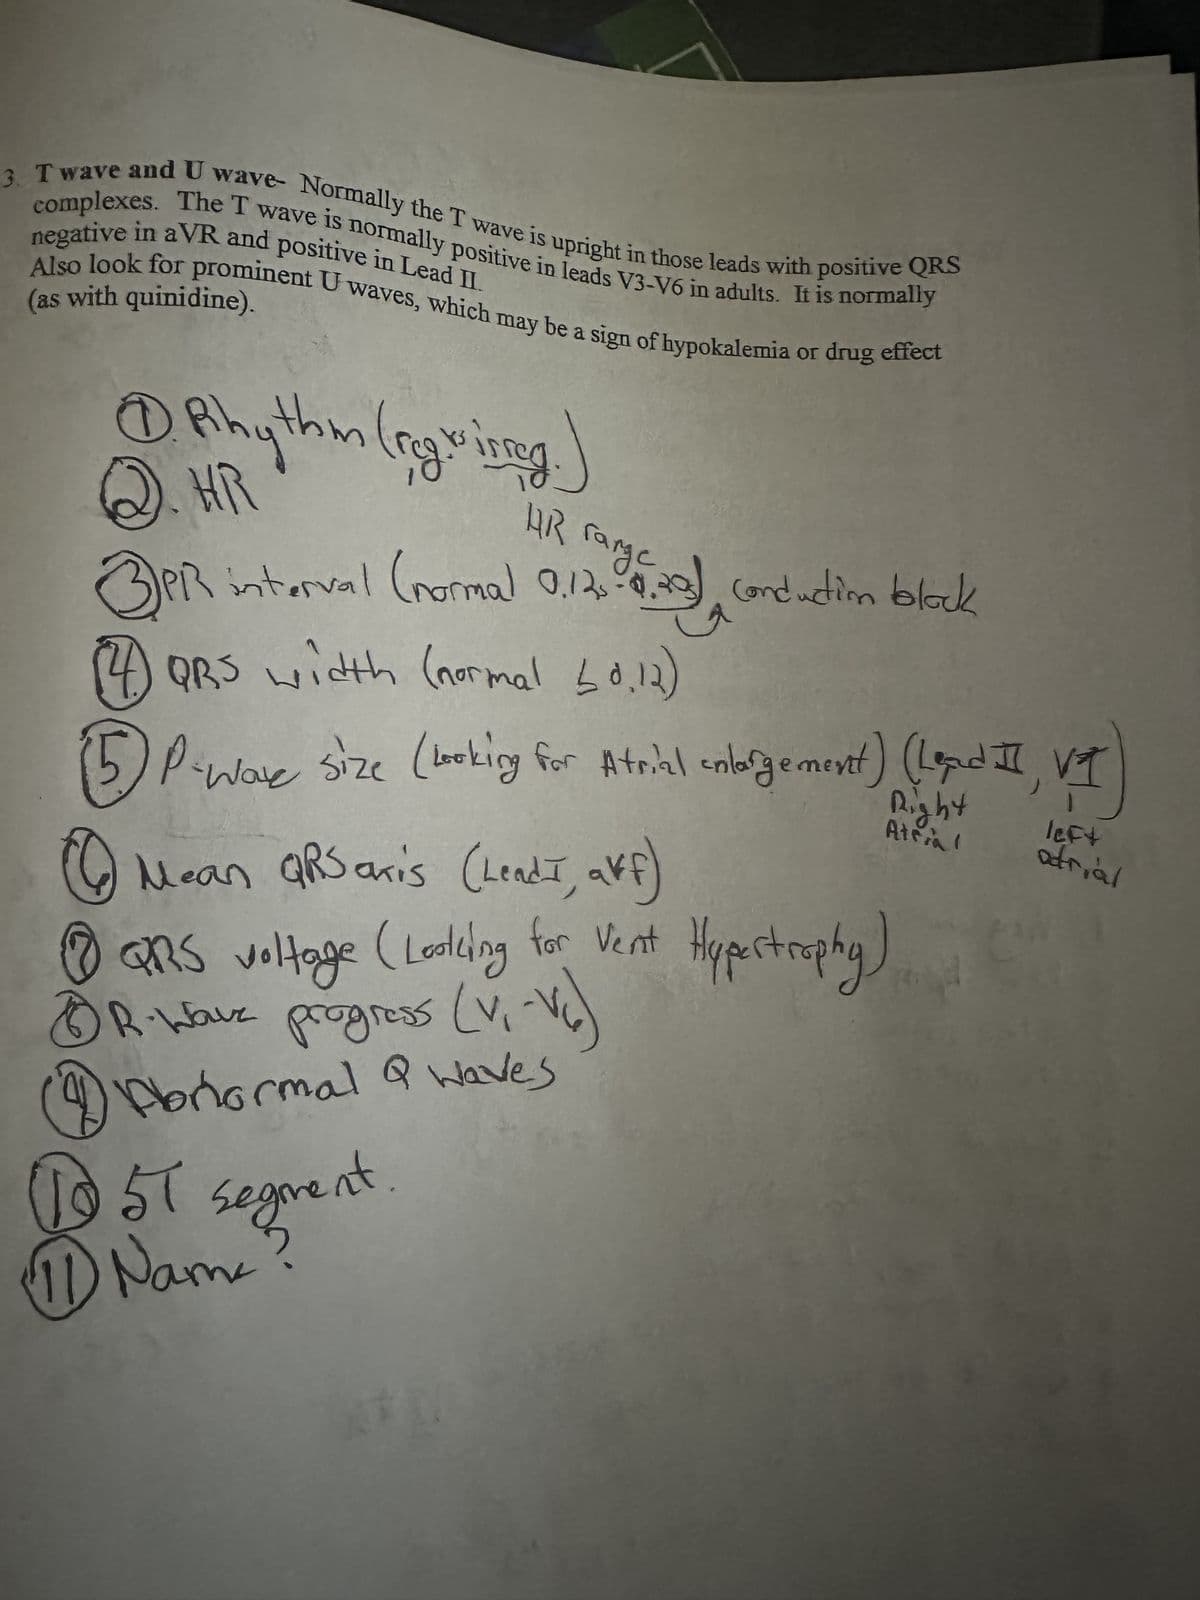 3. T wave and U wave- Normally the T wave is upright in those leads with positive QRS
complexes. The T wave is normally positive in leads V3-V6 in adults. It is normally
negative in aVR and positive in Lead II.
Also look for prominent U waves, which may be a sign of hypokalemia or drug effect
(as with quinidine).
① Rhythm (reg. vs irreg.)
②. HR
HR range
③ PR interval (normal 0.12s-0.20s) conduction block
④ QRS width (normal ≤ 0.12)
⑤ P-wave size (Looking for Atrial enlargement) (Lead II, VI)
Right Atrial
left atrial
⑥ Mean QRS axis (Lead I, avf)
⑦ QRS voltage (Looking for Vent Hypertrophy)
⑧ R-Wave progress (V1-V6)
⑨ Abnormal Q waves
⑩ ST segment.
⑪ Name?